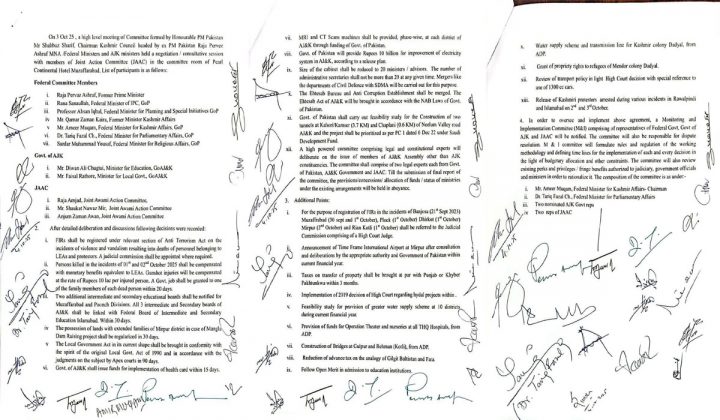 On 3 Oct 25 , a high level meeting of Committee formed by Honourable PM Pakistan
Mr Shahbaz Sharif, Chairman Kashmir Council headed by ex PM Pakistan Raja Pervez
Ashraf MNA. Federal Ministers and AJK ministers held a negotiation / consultative session
with members of Joint Action Committee (JAAC) in the committee room of Pearl
Continental Hotel Muzaffarabad. List of participants is as follows:
Federal Committee Members
i. Raja Pervaz Ashraf, Former Prime Minister
ii. Rana Sanaullah, Federal Minister of IPC, GoP
iii. Professor Ahsan Iqbal, Federal Minister for Planning and Special Initiatives GoP
iv. Mr Qamar Zaman Kaira, Former Minister Kashmir Affairs
v. Mr Ameer Muqam, Federal Minister for Kashmir Affairs, GoP
vi. Dr Tariq Fazal Ch, Federal Minister for Parliamentary Affairs, GoP
vii. Sardar Muhammad Yousuf, Federal Minister for Religious Affairs, GoP
Govt. of AJ&K
i. Mr Diwan Ali Chugtai, Minister for Education, GoAJ&K
ii. Mr Faisal Rathore, Minister for Local Govt., GoAJ&K
JAAC
i. Raja Amjad, Joint Awami Action Committee.
ii. Mr Shaukat Nawaz Mir, Joint Awami Action Committee
iii. Anjum Zaman Awan, Joint Awami Action Committee
2. After detailed deliberation and discussions following decisions were recorded:
i. FIRs shall be registered under relevant section of Anti Terrorism Act on the
incidents of violence and vandalism resulting into deaths of personnel belonging to
LEAs and protestors. A judicial commission shall be appointed where required.
ii. Persons killed in the incidents of 01st and 02nd October 2025 shall be compensated
with monetary benefits equivalent to LEAs. Gunshot injuries will be compensated
at the rate of Rupees 10 lac per injured person. A Govt. job shall be granted to one
of the family members of each dead person within 20 days.
iii. Two additional intermediate and secondary educational boards shall be notified for
Muzaffarabad and Poonch Divisions. All 3 intermediate and Secondary boards of
AJ&K shall be linked with Federal Board of Intermediate and Secondary
Education Islamabad. Within 30 days.
iv. The possession of lands with extended families of Mirpur district in case of Mangla
Dam Raising project shall be regularized in 30 days.
v. The Local Government Act in its current shape shall be brought in conformity with
the spirit of the original Local Govt. Act of 1990 and in accordance with the
judgments on the subject by Apex courts in 90 days.
vi. Govt. of AJ&K shall issue funds for implementation of health card within 15 days.
vii. MRI and CT Scans machines shall be provided, phase-wise, at each district of
AJ&K through funding of Govt. of Pakistan.
viii. Govt. of Pakistan will provide Rupees 10 billion for improvement of electricity
system in AJ&K, according to a release plan.
ix. Size of the cabinet shall be reduced to 20 ministers / advisors. The number of
administrative secretaries shall not be more than 20 at any given time. Mergers like
the departments of Civil Defence with SDMA will be carried out for this purpose.
x. The Ehtesab Bureau and Anti Corruption Establishment shall be merged. The
Ehtesab Act of AJ&K will be brought in accordance with the NAB Laws of Govt.
of Pakistan.
xi. Govt. of Pakistan shall carry out feasibility study for the Construction of two
tunnels at Kahori/Kamser (3.7 KM) and Chaplani (0.6 KM) of Neelum Valley road
AJ&K and the project shall be prioritized as per PC 1 dated 0 Dec 22 under Saudi
Development Fund.
xii. A high powered committee comprising legal and constitutional experts will
deliberate on the issue of members of AJ&K Assembly other than AJK
constituencies. The committee shall comprise of two legal experts each from Govt.
of Pakistan, AJ&K Government and JAAC. Till the submission of final report of
the committee, the provisions/concessions/ allocation of funds / status of ministries
under the existing arrangements will be held in abeyance.
3. Additional Points:
i. For the purpose of registration of FIRs in the incidents of Banjosa (21st Sept 2025)
Muzaffrabad (30 sept and 1st October), Plock (1st October) Dhirkot (1st October)
Mirpur (2nd October) and Rian Kotli (1st October) shall be referred to the Judicial
Commission comprising of a High Court Judge.
ii. Announcement of Time Frame International Airport at Mirpur after consultation
and deliberations by the appropriate authority and Government of Pakistan within
current financial year.
iii. Taxes on transfer of property shall be brought at par with Punjab or Khyber
Pakhtunkwa within 3 months.
iv. Implementation of 2019 decision of High Court regarding hydal projects within .
v. Feasibility study for provision of greater water supply scheme at 10 districts
during current financial year.
vi. Provision of funds for Operation Theatre and nurseries at all THQ Hospitals, from
ADP.
vii. Construction of Bridges at Gulpur and Rehman (Kotli), from ADP.
viii. Reduction of advance tax on the analogy of Gilgit Baltistan and Fata.
ix. Follow Open Merit in admission to education institutions.
x. Water supply scheme and transmission line for Kashmir colony Dadyal, from
ADP.
xi. Grant of propriety rights to refugees of Mendor colony Dadyal.
xii. Review of transport policy in light High Court decision with special reference
to use of 1300 cc cars.
xiii. Release of Kashmiri protestors arrested during various incidents in Rawalpindi
and Islamabad on 2nd and 3rd October.
4. In order to oversee and implement above agreement, a Monitoring and
Implementation Committee (M&I) comprising of representatives of Federal Govt, Govt of
AJK and JAAC will be notified. The committee will also be responsible for dispute
resolution. M & I committee will formulate rules and regulation of the working
methodology and defining time lines for the implementation of each and every decision in
the light of budgetary allocation and other constraints. The committee will also review
existing perks and privileges / fringe benefits authorized to judiciary, government officials
and ministers in order to rationalize it. The composition of the committee is as under:-
i. Mr Ameer Muqam, Federal Minister for Kashmir Affairs- Chairman
ii. Dr Tariq Fazal Ch, Federal Minister for Parliamentary Affairs
iii. Two nominated AJK Govt reps
iv. Two reps of JAAC